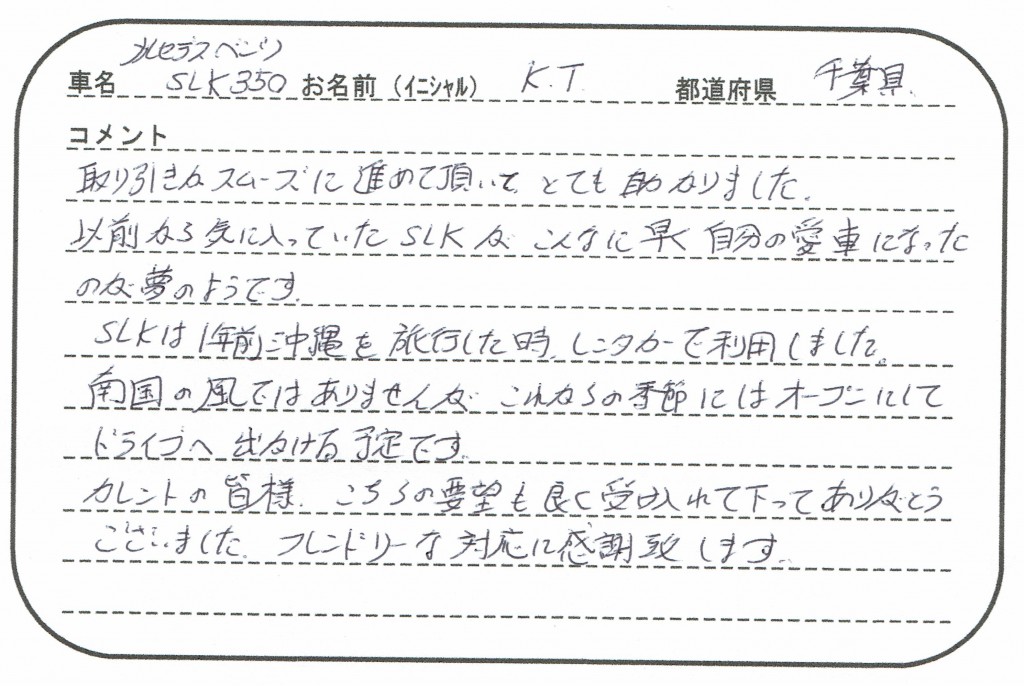 メルセデスベンツ
車名 SLK350 お名前（イニシャル） K.T. 都道府県 千葉県
コメント
取り引きがスムーズに進めて頂いて とても助かりました。
以前から気に入っていたSLKが こんなに早く自分の愛車になった
のが夢のようです。
SLKは1年前沖縄を旅行した時、レンタカーで利用しました。
南国の風ではありませんが これからの季節にはオープンにして
ドライブへ出かける予定です。
カレントの皆様、こちらの要望も良く受け入れて下ってありがとう
ございました。フレンドリーな対応に感謝致します。